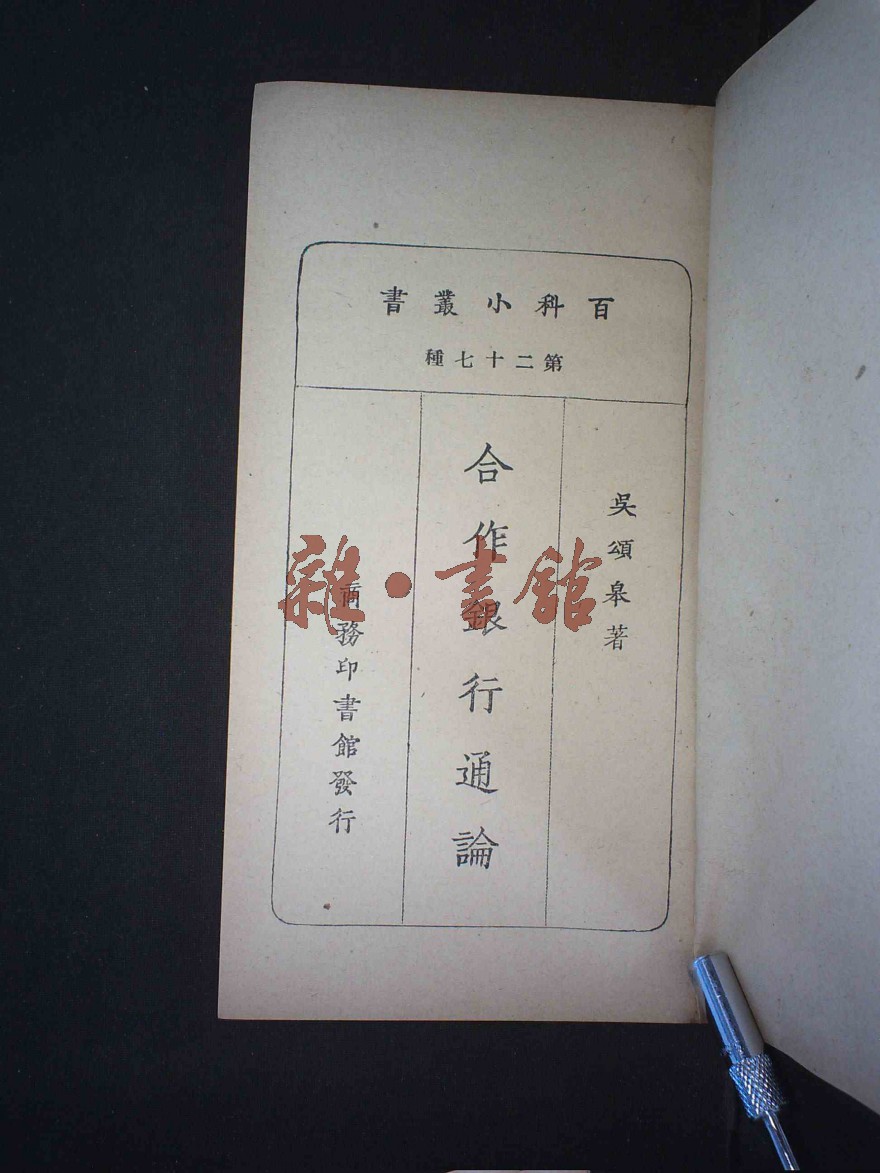 百科小叢書
第二十七種
吳頌皋著
合作銀行通論
商務印書館發行
雜·書館